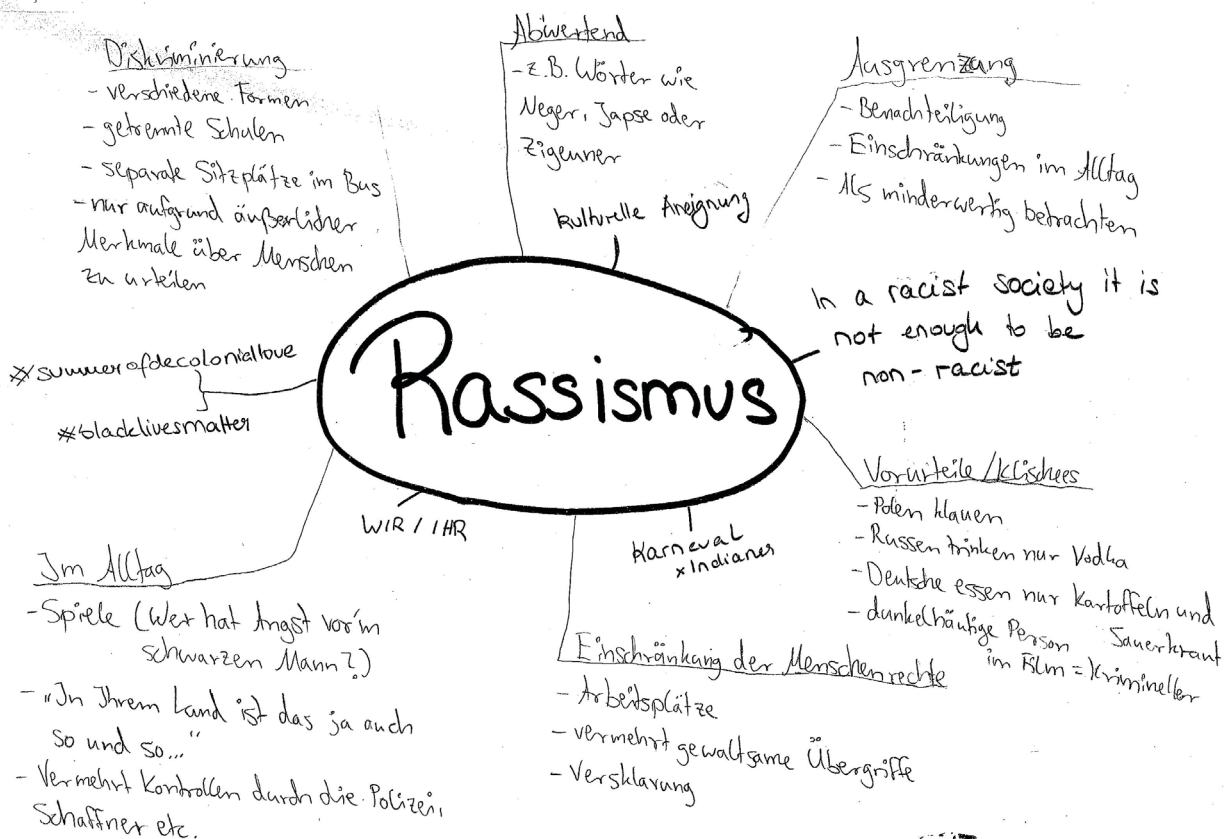 Diskriminierung
- verschiedene Formen
- getrennte Schulen
- separate Sitzplätze im Bus
- nur aufgrund äußerlicher
Merkmale über Menschen
zu urteilen
Abwertend
- z.B. Wörter wie
Neger, Japse oder
Zigeuner
kulturelle Aneignung
Ausgrenzung
- Benachteiligung
- Einschränkungen im Alltag
- Als minderwertig betrachten
In a racist society it is
not enough to be
non-racist
#summerofdecoloniallove
#blacklivesmatter
Rassismus
Vorurteile/Klischees
- Polen klauen
- Russen trinken nur Vodka
- Deutsche essen nur Kartoffeln und
Sauerkraut
- dunkelhäutige Person
im Film = Krimineller
WIR / IHR
Karneval
x Indianer
Im Alltag
- Spiele (Wer hat Angst vor'm
schwarzen Mann?)
- „In Ihrem Land ist das ja auch
so und so..."
- Vermehrt Kontrollen durch die Polizei,
Schaffner etc.
Einschränkung der Menschenrechte
- Arbeitsplätze
- vermehrt gewaltsame Übergriffe
- Versklavung